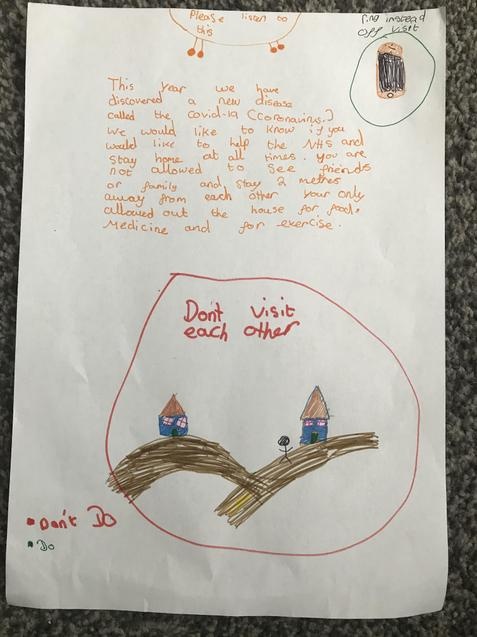 Please listen to
this
Ring instead
off visit
This year we have
discovered a new disease
called the covid-19 (coronavirus.)
We would like to know if you
would like to help the NHS and
stay home at all times. you are
not allowed to see friends
or family and stay 2 metres
away from each other your only
allowed out the house for food,
Medicine and for exercise.
Dont visit
each other
Don't Do
Do